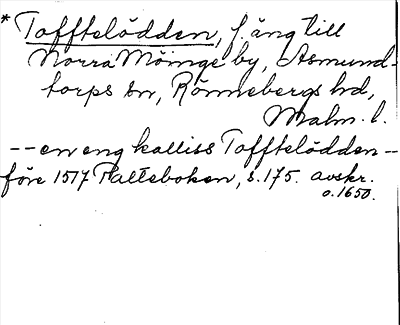 * Tofftelödden, f. äng till
Norra Möinge by, Asmund-
torps sn, Rönnebergs hd,
Malm. l.
-- en eng kalliss Tofftelödden --
före 1517 Palteboken, s. 175. avskr.
o. 1650.